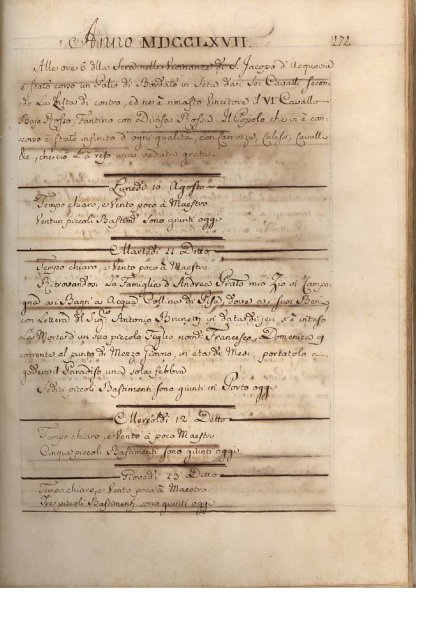 Anno MDCCLXVII. 272
Alle ore 6 della Sera nelle Vicinanze di S. Jacopo d' Acquaviva
è stato corso un Palio di Broccato in Seta da Sei Cavalli secon
do La Lista di contro, ed ne è rimasto Vincitore il VI Cavallo
Bajo Rosso, Fantino con Divisa Rossa. Il Popolo che vi è con
corso è stato infinito d' ogni qualità, con Carrozze, Calessi, Cavalli
&c, che ciò à reso una veduta grata.
Lunedì 10. Agosto
Tempo chiaro, e Vento poco à Maestro
Ventun piccoli Bastimti sono giunti oggi
Martedì 11. Detto
Tempo chiaro, e Vento poco à Maestro.
Ritrovandosi La Famiglia d' Andrea Prato mio Zio in Campa
gna ai Bagni ad Acqua Collina di Pisa, dove à i suoi Beni
con Lettera del Sigr. Antonio Brunetti in data di jeri s'è inteso
La Morte d' un suo piccolo Figlio nome Francesco, Domenica 9
corrente al punto di Mezzo Giorno, in età di Mesi portatolo a
godere il Paradiso una sola febbre
Sedici piccoli Bastimenti sono giunti in Porto oggi
Mercoldì 12. Detto
Tempo chiaro, e Vento à poco Maestro
Cinque piccoli Bastimenti sono giunti oggi
Giovedì 13. Detto
Tempo chiaro, e Vento poco à Maestro.
Tre piccoli Bastimenti sono giunti oggi